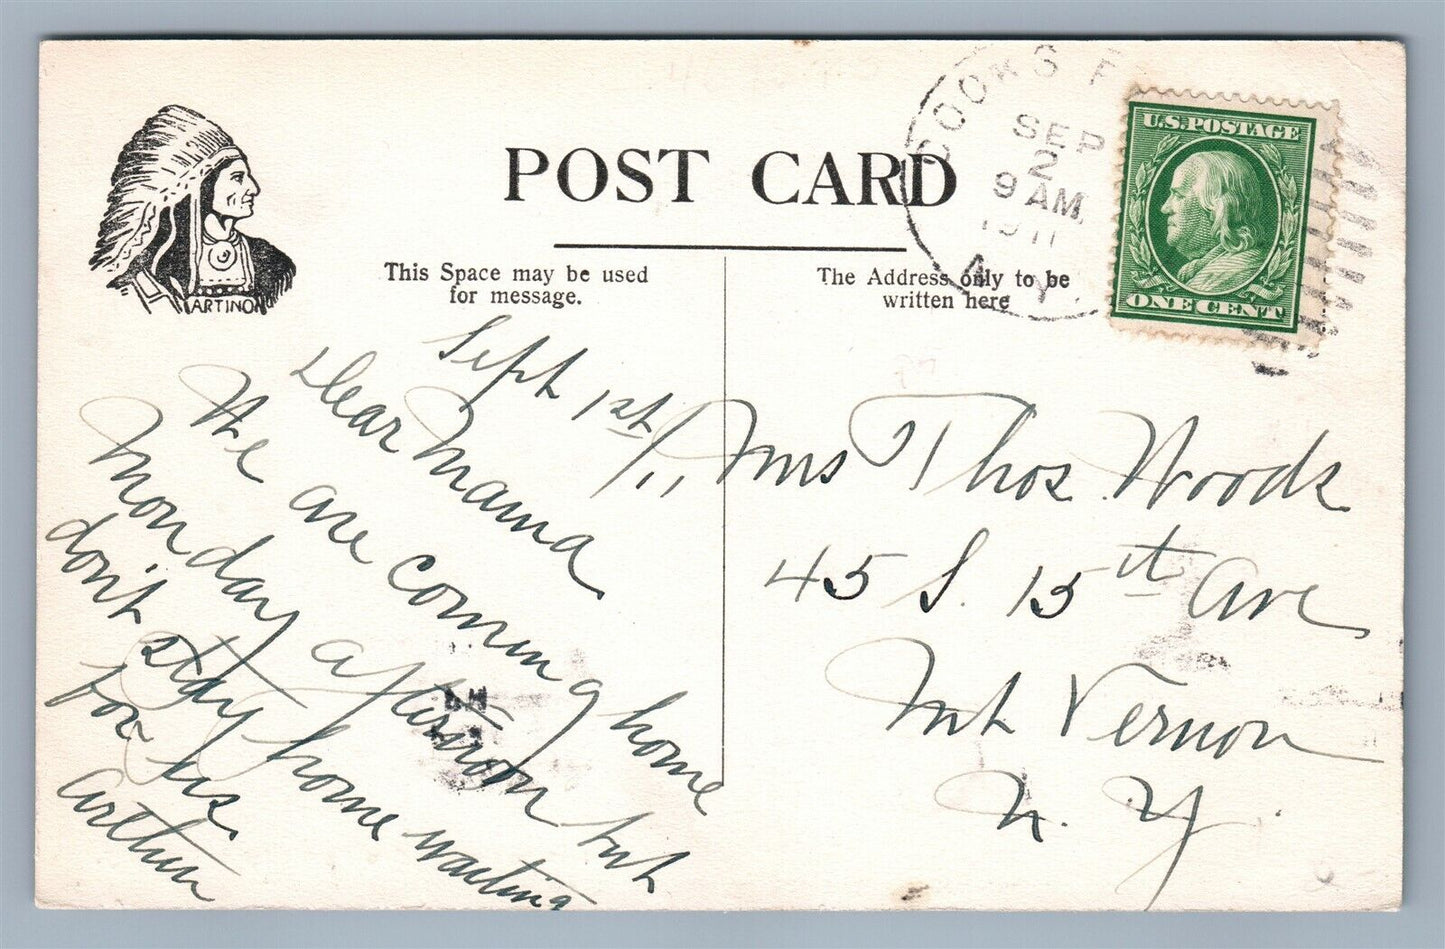 POST CARD
COOKS F
SEP
2
9 AM
1911
N.Y.
U.S. POSTAGE
ONE CENT
ARTINO
This Space may be used
for message.
The Address only to be
written here
Sept 1st/11
Dear Mama
We are coming home
Monday afternoon but
don't stay home waiting
for us
Arthur
Mrs Thos Woods
45 S. 15th Ave
Mt Vernon
N.Y.